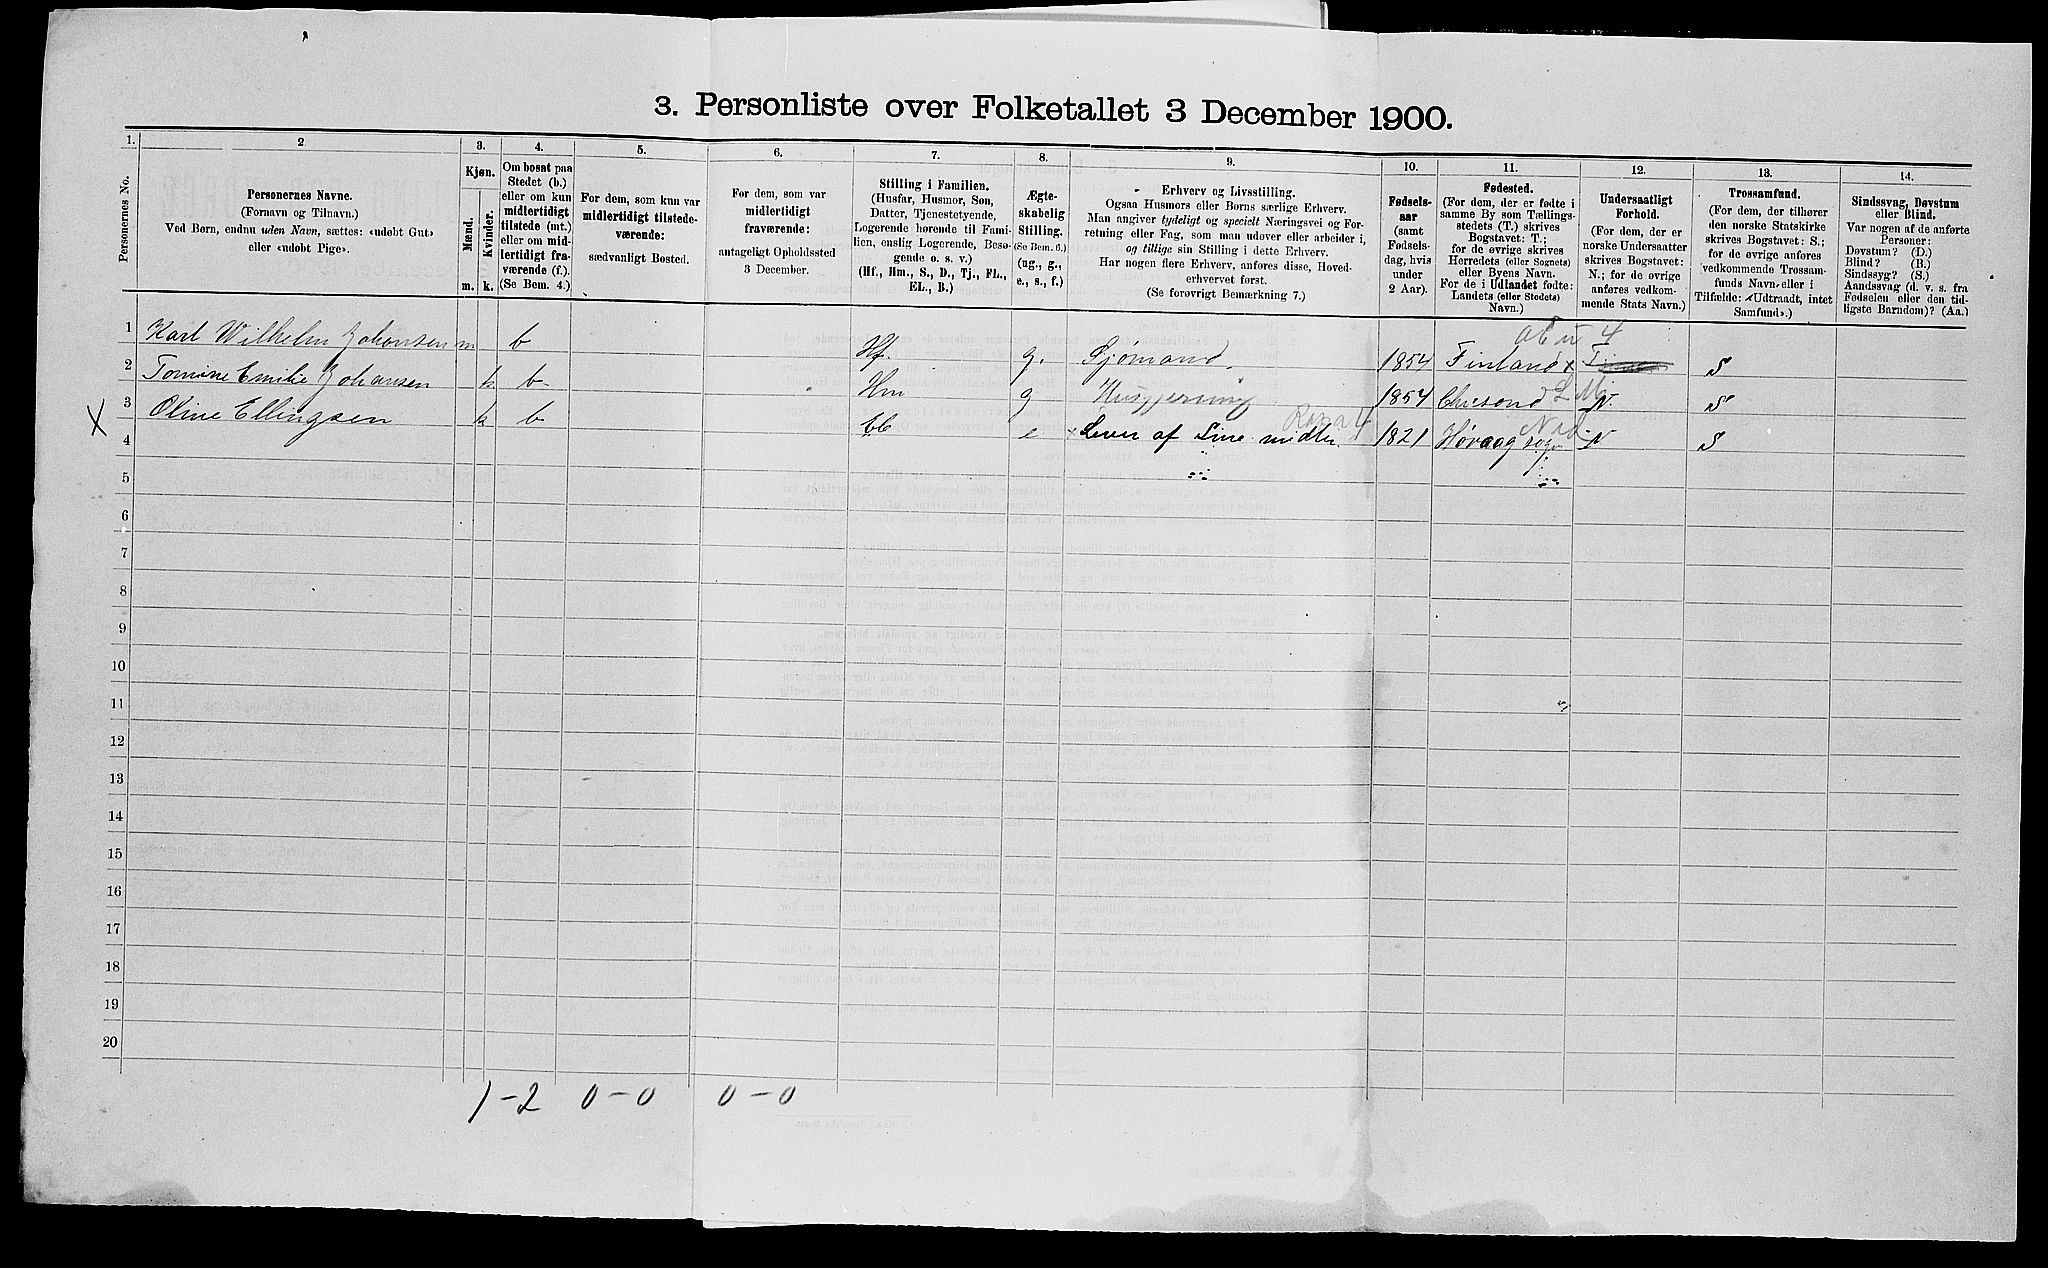 3. Personliste over Folketallet 3 December 1900.
1. 2 3. 4. 5. 6. 7. 8. 9. 10. 11. 12. 13. 14.
Personernes No.
Personernes Navne.
(Fornavn og Tilnavn.)
Ved Børn, endnu uden Navn, sættes: «udøbt Gut»
eller «udøbt Pige».
Kjøn.
Mænd.
Kvinder.
m. k.
Om bosat paa
Stedet (b.)
eller om kun
midlertidigt
tilstede (mt.)
eller om mid-
lertidigt fra-
værende (f.).
(Se Bem. 4.)
For dem, som kun var
midlertidigt tilstede-
værende:
sædvanligt Bosted.
For dem, som var
midlertidigt
fraværende:
antageligt Opholdssted
3 December.
Stilling i Familien.
(Husfar, Husmor, Søn,
Datter, Tjenestetyende,
Logerende hørende til Fami-
lien, enslig Logerende, Besø-
gende o. s. v.)
(Hf., Hm., S., D., Tj., FL.,
EL., B.)
Ægte-
skabelig
Stilling.
(Se Bem. 6.)
(ug., g.,
e., s., f.)
Erhverv og Livsstilling.
Ogsaa Husmors eller Børns særlige Erhverv.
Man angiver tydeligt og specielt Næringsvei og For-
retning eller Fag, som man udøver eller arbeider i,
og tillige sin Stilling i dette Erhverv.
Har nogen flere Erhverv, anføres disse, Hoved-
erhvervet først.
(Se forøvrigt Bemærkning 7.)
Fødsels-
aar
(samt
Fødsels-
dag, hvis
under
2 Aar).
Fødested.
(For dem, der er fødte i
samme By som Tællings-
stedets (T.) skrives
Bogstavet: T.;
for de øvrige skrives
Herredets (eller Sognets)
eller Byens Navn.
For de i Udlandet fødte:
Landets (eller Stedets)
Navn.)
Undersaatligt
Forhold.
(For dem, der er
norske Undersaatter
skrives Bogstavet:
N.; for de øvrige
anføres vedkom-
mende Stats Navn.)
Trossamfund.
(For dem, der tilhører
den norske Statskirke
skrives Bogstavet: S.;
for de øvrige anføres
vedkommende Trossam-
funds Navn eller i
Tilfælde: «Udtraadt, intet
Samfund».)
Sindssvag, Døvstum
eller Blind.
Var nogen af de anførte
Personer:
Døvstum? (D.)
Blind? (B.)
Sindssyg? (S.)
Aandssvag (d. v. s. fra
Fødselen eller den tid-
ligste Barndom)? (Aa.)
1 Karl Wilhelm Johansen m b Hf. g. Sjømand. 1854 Finland x S
2 Tomine Emilie Johansen k b Hm g Husgjerning 1854 N. S
X 3 Oline Ellingsen k b e x Lever af Sine midler 1821 Høvaag sogn N S
4
5
6
7
8
9
10
11
12
13
14
15
16
17
18
19
20
1 - 2 0 - 0 0 - 0